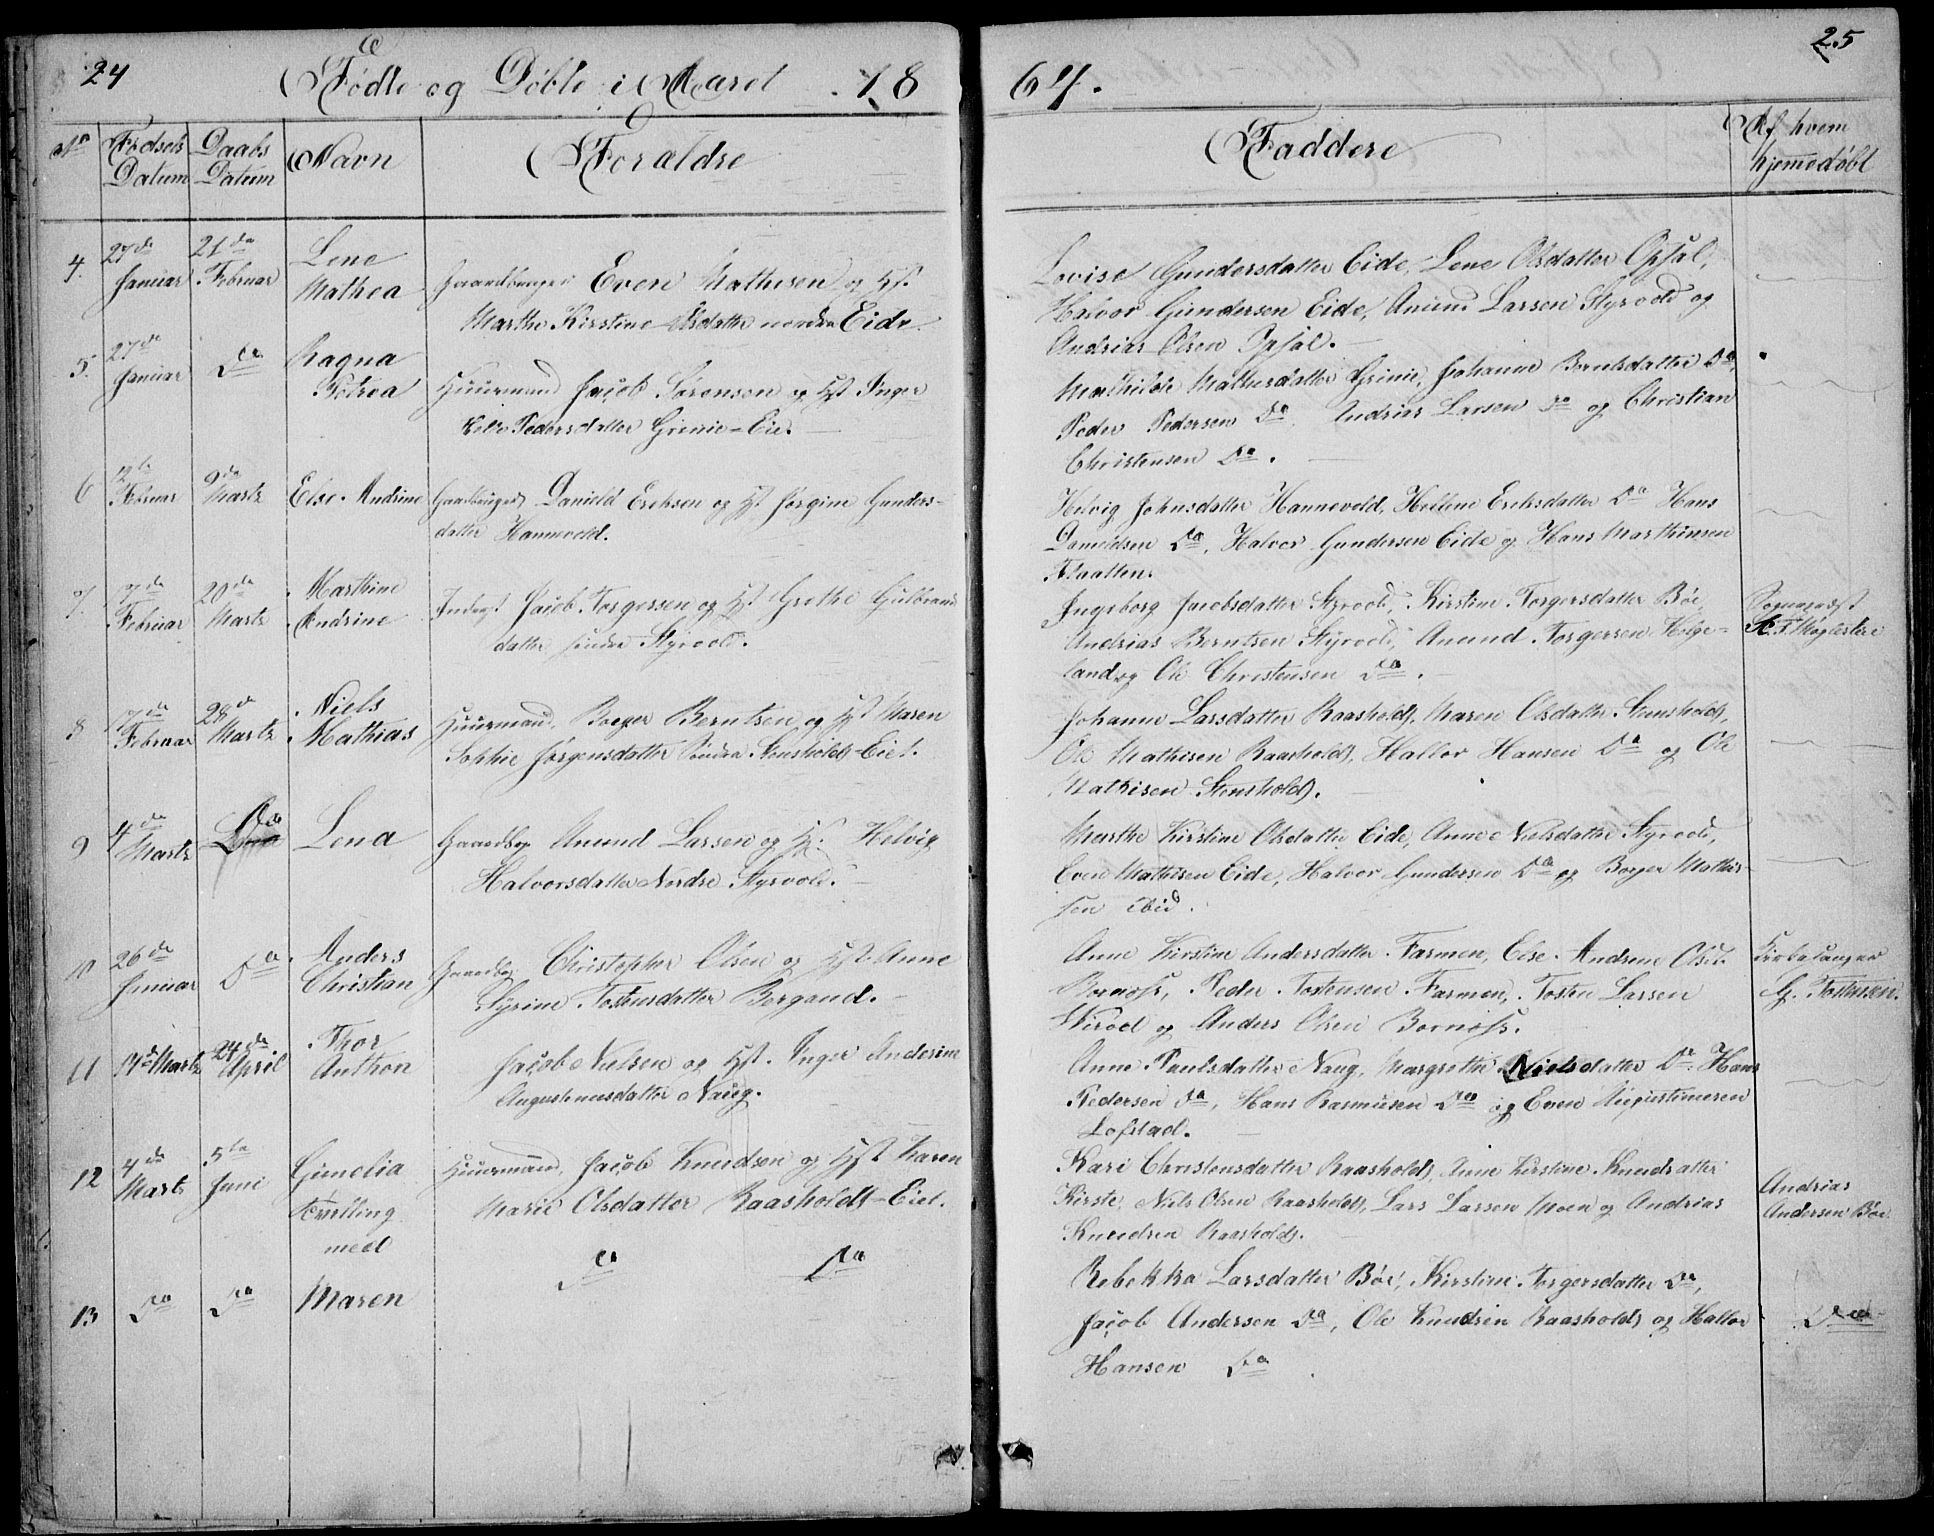 24
Fødte og Døbte i Aaret 18
64.
25
No
Fødsels Datum
Daabs Datum
Navn
Forældre
Faddere
Af hvem hjemmedøbt
4. 27de Januar 21da Februar Lene Mathea
Gaardbruger Even Mathisen og Hst.
Marthe Kirstine Olsdatter nordre Eide.
Lovise Gundersdatter Eide, Lene Olsdatter Opsal,
Halvor Gundersen Eide, Anund Larsen Styrvold og
Andrias Olsen Opsal.
5. 27de Januar Do Ragna Petrea
Huusmand Jacob Sørensen og Hst Inger
Pedersdatter Grinie-Eie.
Mathilde Mathisdatter Grinie, Johanne Berntsdatter Do,
Peder Pedersen Do, Andrias Larsen Do og Christian
Christensen Do.
6 12te Februar 9da Martz Else Andrine
Gaardbruger Danield Ericksen og Hst Jørgine Gunders-
datter Hannevold.
Helvig Johnsdatter Hannevold, Hellene Eriksdatter Do Hans
Danieldsen Do, Halvor Gundersen Eide og Hans Marthinsen
Flaatten.
7. 7de Februar 20da Martz Marthine Andrine
Inderst Jacob Torgersen og Hst Grethe Gulbrands
datter søndre Styrvold.
Ingeborg Jacobsdatter Styrvold, Kirstine Torgersdatter Böe,
Andrias Berntsen Styrvold, Anund Torgersen Helge-
land og Ole Christensen Do.
Sognepræst
8 7de Februar 28de Martz Niels Mathias
Huusmand, Borger Berntsen og Hst Maren
Sophie Jørgensdatter Søndre Stensholdt-Eiet.
Johanne Larsdatter Raasholdt, Maren Olsdatter Stensholdt,
Ole Mathisen Raasholdt, Hallor Hansen Do og Ole
Mathisen Stensholdt.
9 4de Martz Do Lena
Gaardbr Anund Larsen og Hst. Helvig
Halvorsdatter Nordre Styrvold.
Marthe Kirstine Olsdatter Eide, Anne Nielsdatter Styrvold,
Even Mathisen Eide, Halvor Gundersen Do og Borger Mathis-
sen ibid.
10 26de Januar Do Anders Christian
Gaardbr Christopher Olsen og Hst Anne
Syrine Tostensdatter Bergand.
Anne Kirstine Andersdatter Farmen, Else Andrine Olsd.
Bornøss, Peder Tostensen Farmen, Tosten Larsen
Virød og Anders Olsen Bornøss.
Kirkesanger
G. Tostensen.
11 14de Martz 24de April Thor Anthon
Jacob Nielsen og Hst. Inger Anderine
Augustinusdatter Naug.
Anne Paulsdatter Naug, Margrethe Nielsdatter Do. Hans
Pedersen Do, Hans Rasmusen Do og Even Augustinusen
Lofstad.
12 4de Marts 5te Juni Gunelia Tvilling med
Huusmand, Jacob Knudsen og Hst Karen
Marie Olsdatter Raasholdt-Eiet.
Kari Christensdatter Raasholdt, Anne Kirstine Knudsdatter
Kirste, Niels Olsen Raasholdt, Lars Larsen Moen og Andrias
Knudsen Raasholdt.
Andrias
Andersen Böe
13 Do Do Maren
Do Do
Rebekka Larsdatter Böe, Kirstine Torgersdatter Do,
Jacob Andersen Do, Ole Knudsen Raasholdt og Hallor
Hansen Do
Do